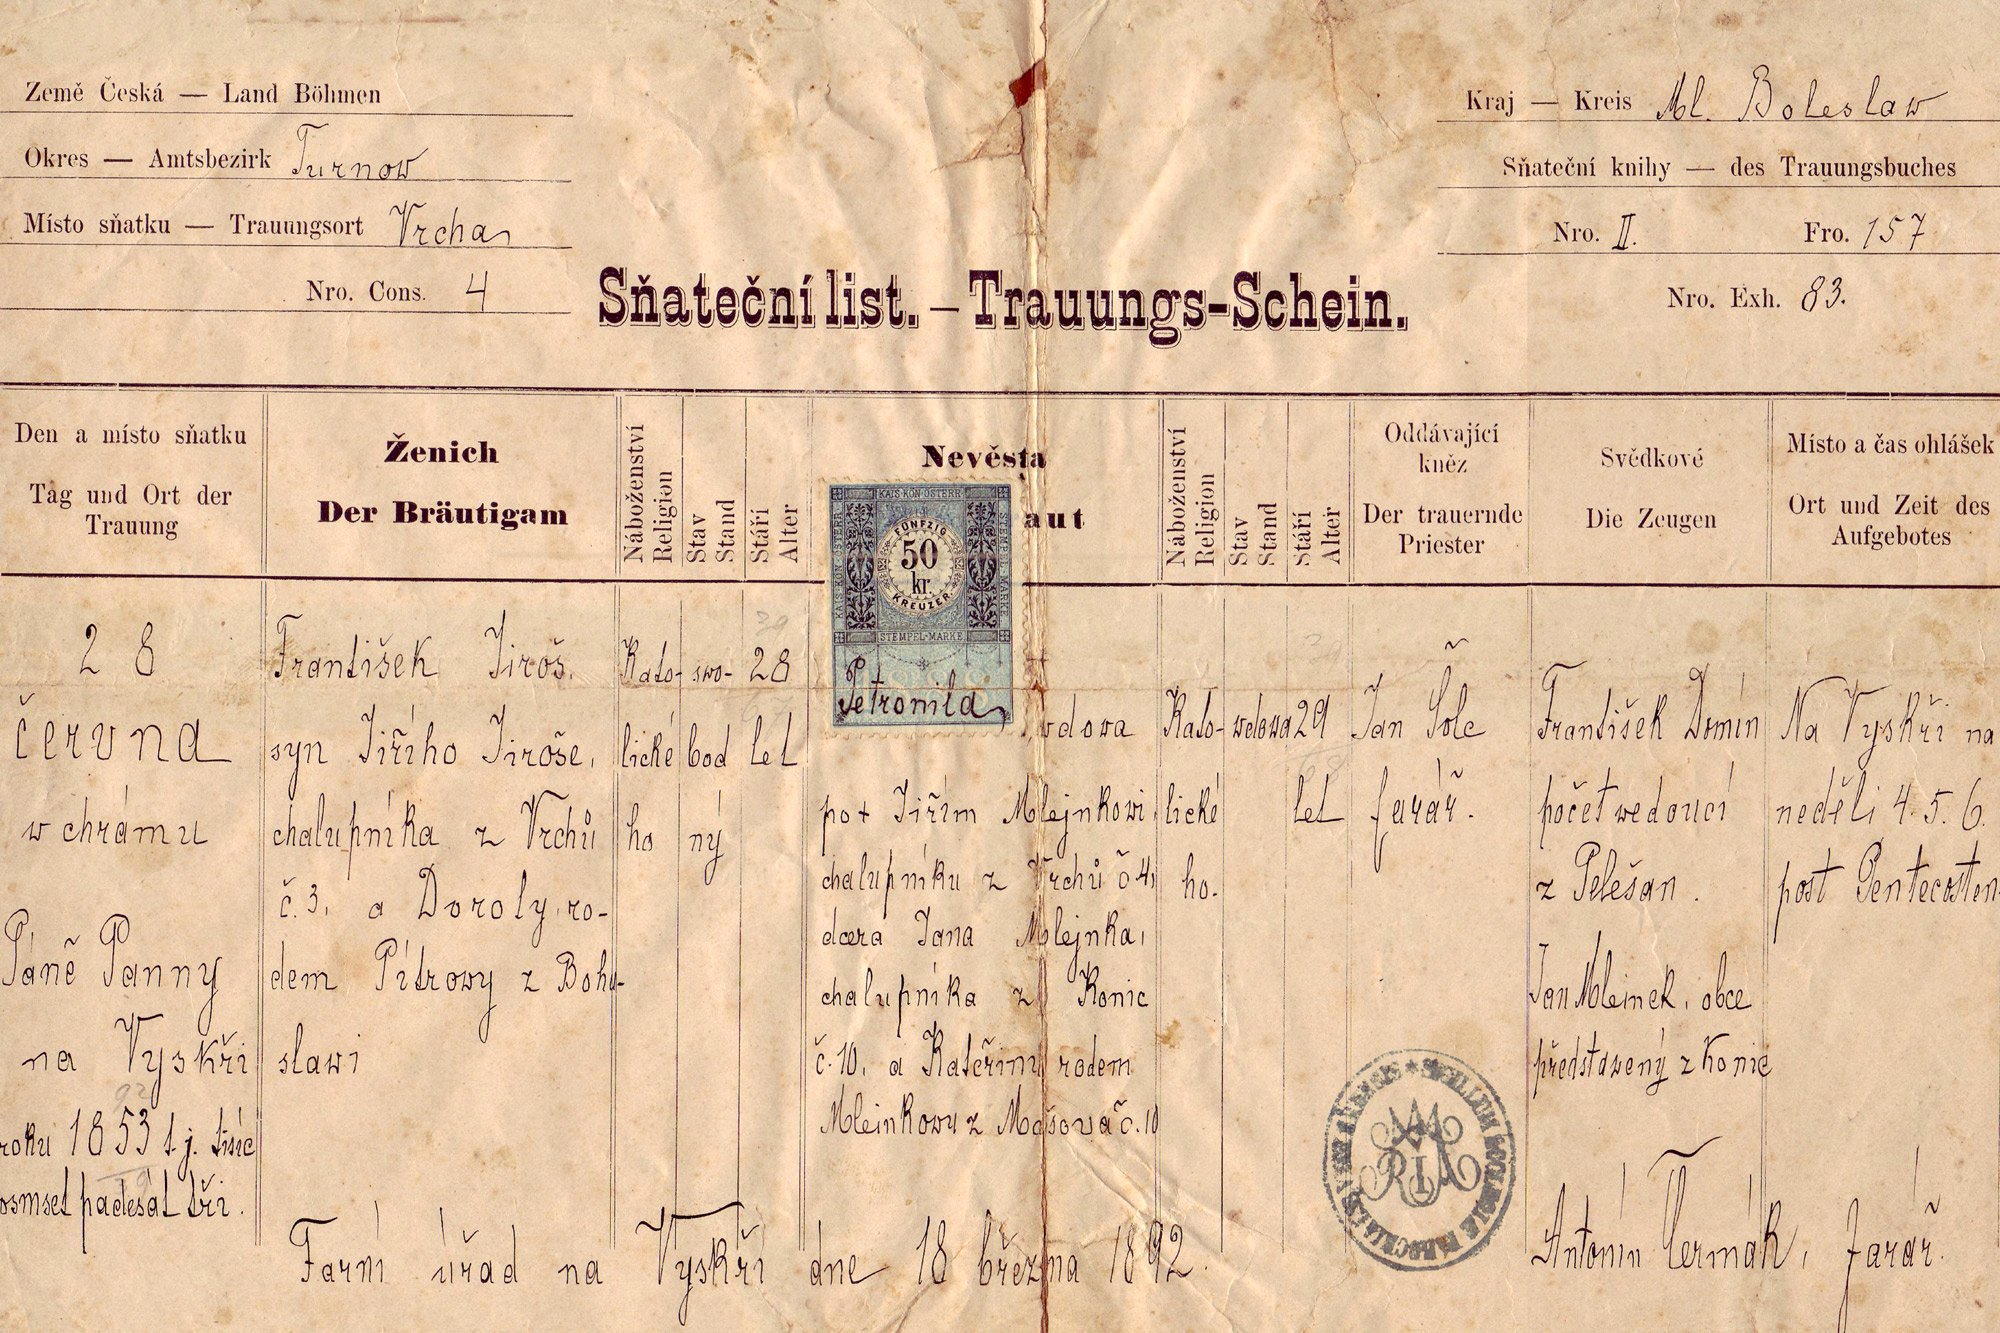 Země Česká — Land Böhmen
Okres — Amtsbezirk Turnow
Místo sňatku — Trauungsort Vrcha
Nro. Cons. 4
Kraj — Kreis Ml. Boleslaw
Sňateční knihy — des Trauungsbuches
Nro. II. Fro. 157
Nro. Exh. 83.
Sňateční list. — Trauungs-Schein.
Den a místo sňatku
Tag und Ort der
Trauung
Ženich
Der Bräutigam
Náboženství
Religion
Stav
Stand
Stáří
Alter
Nevěsta
aut
Náboženství
Religion
Stav
Stand
Stáří
Alter
Oddávající
kněz
Der trauernde
Priester
Svědkové
Die Zeugen
Místo a čas ohlášek
Ort und Zeit des
Aufgebotes
28
června
w chrámu
Páně Panny
na Vyskři
roku 1853 t.j. tisíc
osmset padesát tři.
František Jiroš.
syn Jiřího Jiroše,
chalupníka z Vrchů
č. 3. a Doroty, ro-
dem Pítrowy z Bohu-
slawi
Kato-
lické
ho
swo-
bod
ný
28
let
KAIS·KÖN·ÖSTERR
STEMPEL-MARKE
KAIS·KÖN·ÖSTERR
FÜNFZIG
50
kr.
KREUZER
STEMPEL-MARKE
Petronila
wdowa
po † Jiřím Mlejnkowi,
chalupníku z Vrchů č 4,
dcera Jana Mlejnka,
chalupníka z Konic
č. 10. a Kateřiny rodem
Mleinkowy z Mašova č. 10
Kato-
lické
ho.
wdowa
29
let
Jan Šolc
farář.
František Domín
počet wedoucí
z Pelešan.
Jan Mleinek, obce
představený z Konic
Na Vyskři na
neděli 4. 5. 6.
post Pentecosten
SIGILLUM ECCLESIAE PAROCHIALIS
MARIA
Farní úřad na Vyskři dne 18 března 1892.
Antonín Čermák, farář.